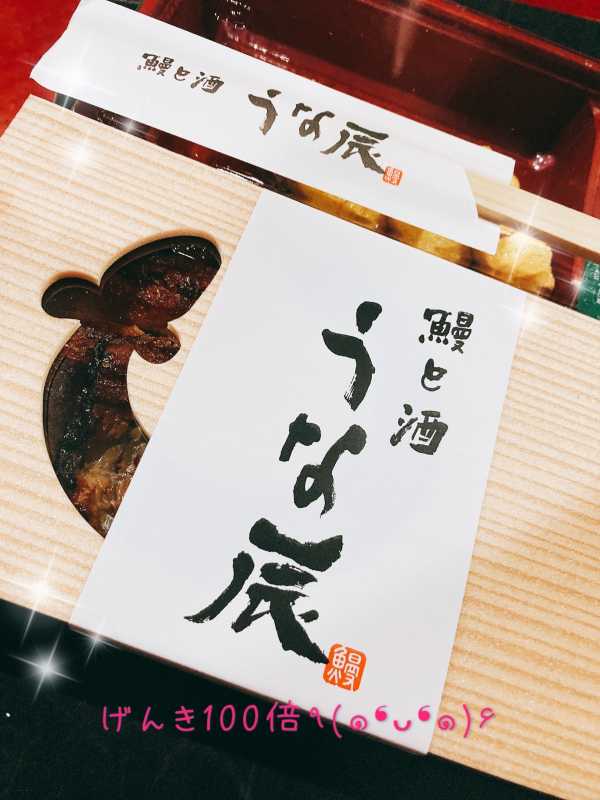 鰻と酒 うな辰
鰻
鰻と酒
うな辰
鰻
げんき100倍٩(๑❛ᴗ❛๑)۶